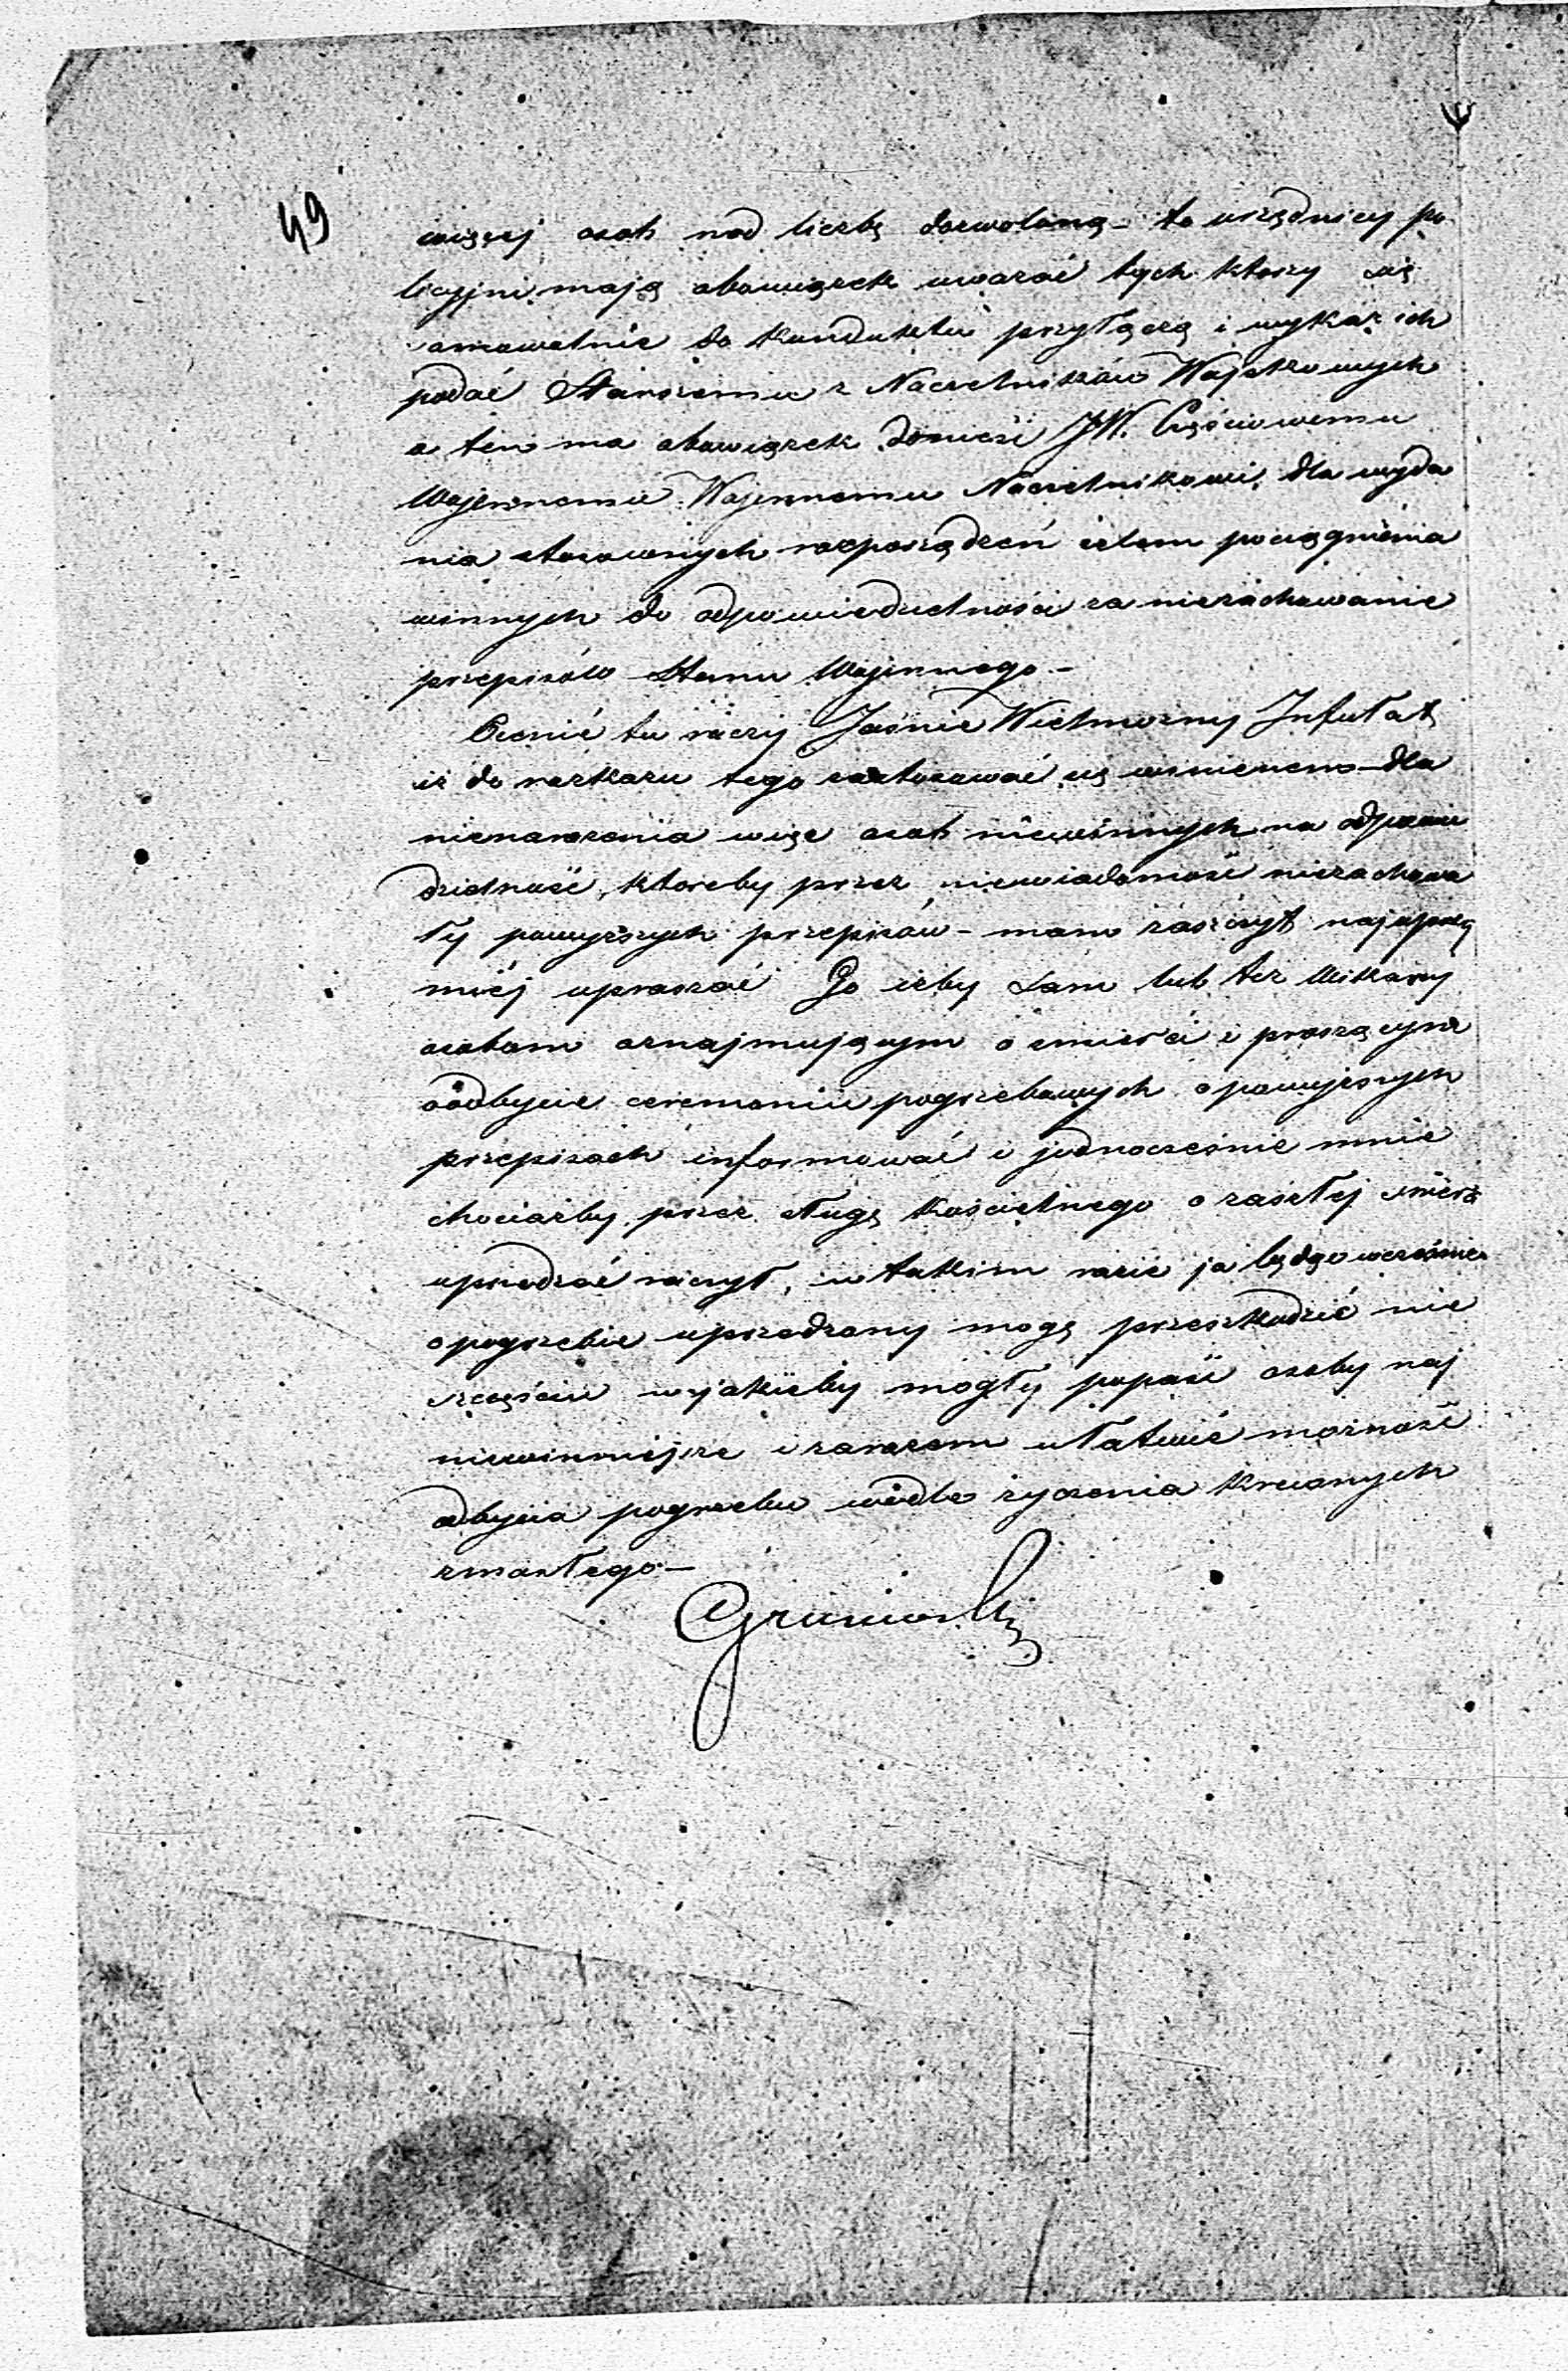 49
więcej osob nad liczbę dozwoloną – to urzędnicy po
licyjni mają obowiązek uważać tych ktorzy się
samowolnie do konduktu przyłączą i wykaz ich
podać Starszemu z Naczelników Wojskowych
a ten ma obowiązek donieść JW. Częściowemu
Wojennemu Wojennemu Naczelnikowi, dla wyda
nia stosownych rozporządzeń celem pociągnienia
winnych do odpowiedzielności za niezachowanie
przepisów Stanu Wojennego –
Ocenić tu raczy Jaśnie Wielmożny Infułat
iż do rozkazu tego zastosować się winienem – dla
nienarażenia więc osob niewinnych na odpowie
dzielność, ktoreby przez niewiadomość niezachowa
ły powyższych przepisów – mam zaszczyt najuprzej
miéj upraszać Go iżby Sam lub też Wikary
osobom oznajmującym o śmierći i proszącym
o odbycie ceremonii pogrzebowych o powyższych
przepisach informować i jednocześnie mnie
chociażby przez sługę Kościelnego o zaszłej śmierci
uprzedzać raczył, w takim razie ja będąc wcześnie
o pogrzebie uprzedzony mogę przeszkodzić nie
szczęściu w jakieby mogły popaść osoby naj
niewinniejsze i zarazem ułatwić możność
odbycia pogrzebu wedle życzenia Krewnych
zmarłego –